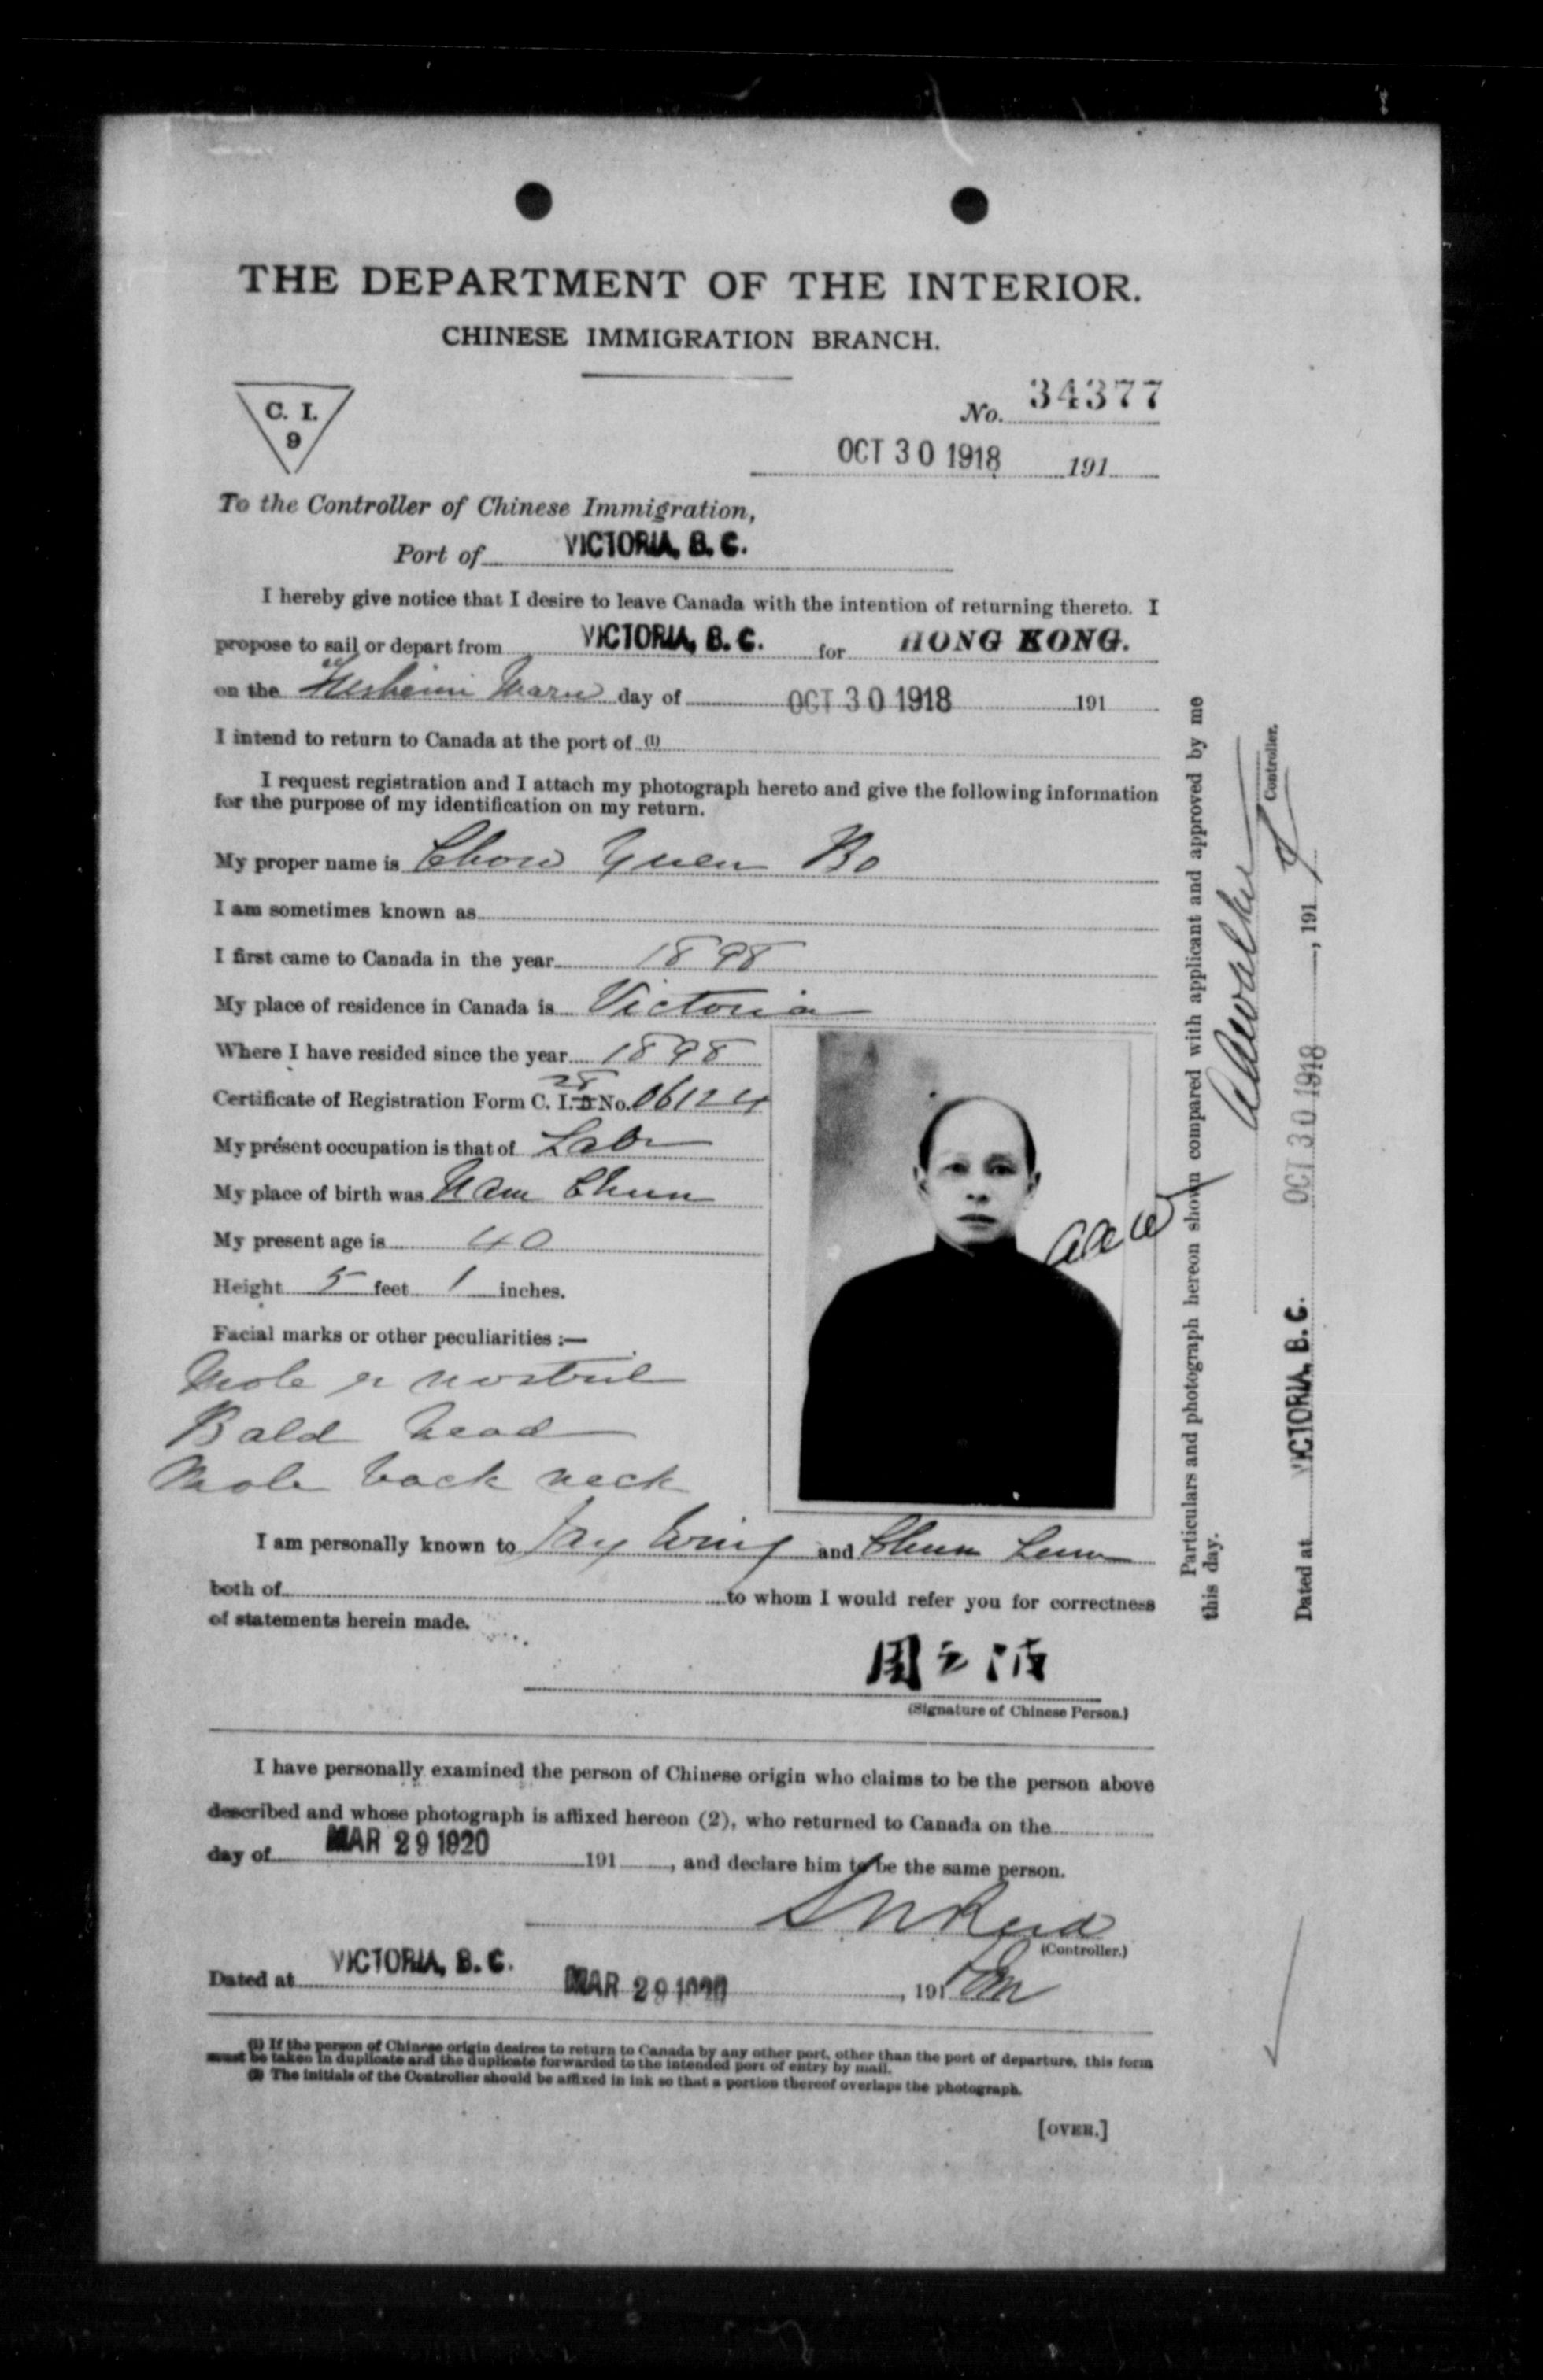 THE DEPARTMENT OF THE INTERIOR.
CHINESE IMMIGRATION BRANCH.
C. I.
9
No. 34377
OCT 30 1918 191
To the Controller of Chinese Immigration,
Port of VICTORIA, B. C.
I hereby give notice that I desire to leave Canada with the intention of returning thereto. I
propose to sail or depart from VICTORIA, B. C. for HONG KONG.
on the Maru day of OCT 30 1918 191
I intend to return to Canada at the port of (1)
I request registration and I attach my photograph hereto and give the following information
for the purpose of my identification on my return.
My proper name is Chow Yuen Bo
I am sometimes known as
I first came to Canada in the year 1898
My place of residence in Canada is Victoria
Where I have resided since the year 1898
28
Certificate of Registration Form C. I. 5 No. 06124
My present occupation is that of Labr
My place of birth was Nam Chun
My present age is 40
Height 5 feet 1 inches.
Facial marks or other peculiarities :—
Mole r nostril
Bald head
Mole back neck
I am personally known to and Chun Lum
both of to whom I would refer you for correctness
of statements herein made.
周
(Signature of Chinese Person.)
I have personally examined the person of Chinese origin who claims to be the person above
described and whose photograph is affixed hereon (2), who returned to Canada on the
day of MAR 29 1920 191 , and declare him to be the same person.
Reid
(Controller.)
Dated at VICTORIA, B. C. MAR 29 1920 , 191
(1) If the person of Chinese origin desires to return to Canada by any other port, other than the port of departure, this form
must be taken in duplicate and the duplicate forwarded to the intended port of entry by mail.
(2) The initials of the Controller should be affixed in ink so that a portion thereof overlaps the photograph.
[OVER.]
Particulars and photograph hereon shown compared with applicant and approved by me
this day.
Controller.
Dated at VICTORIA, B. C. OCT 30 1918 , 191